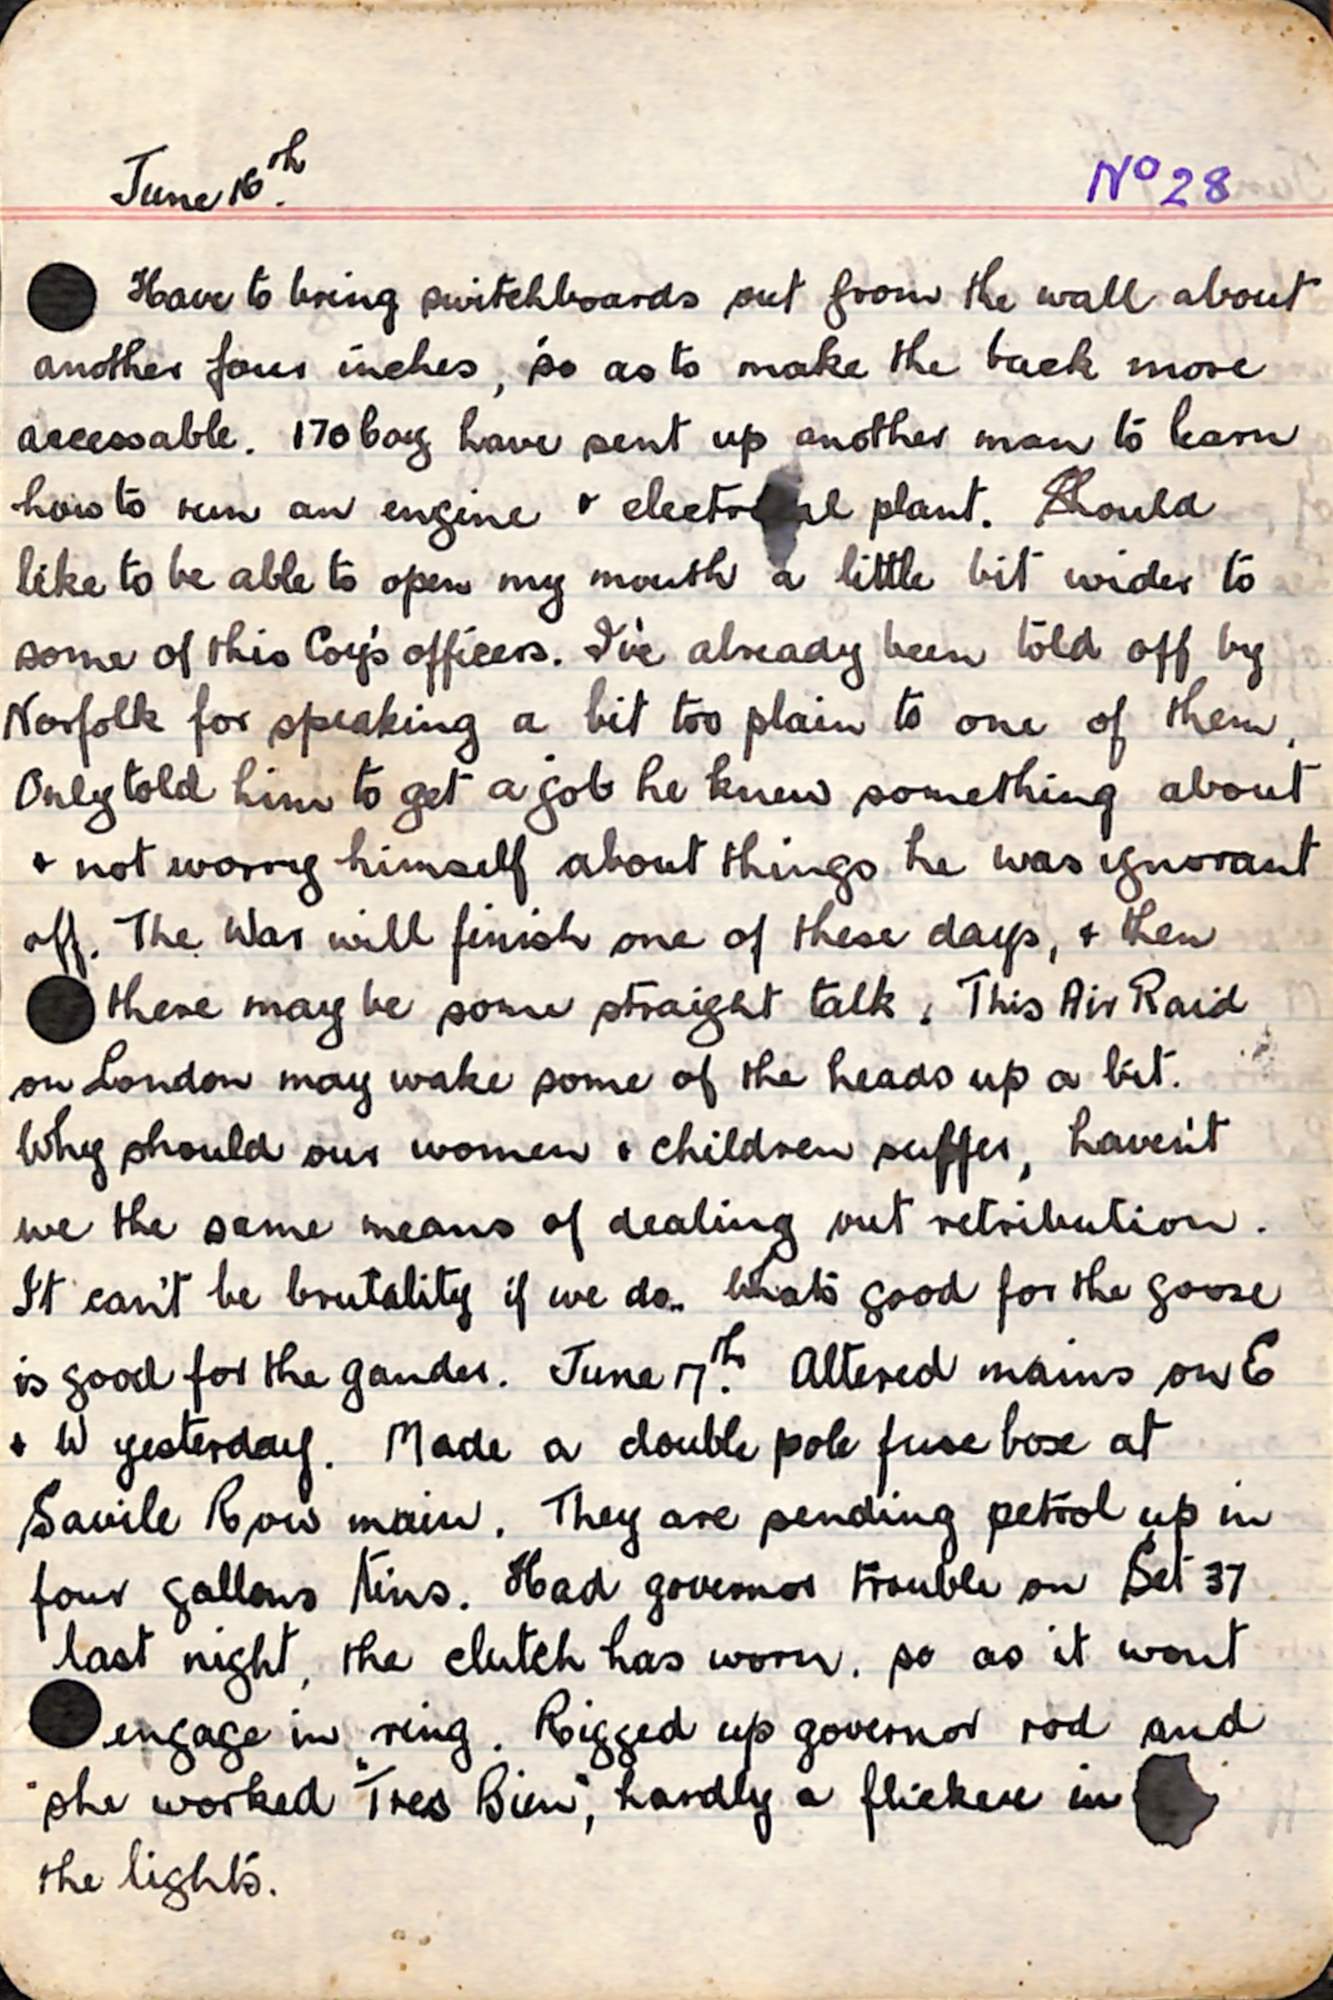 June 16th.
No 28
Have to bring switchboards out from the wall about
another four inches, so as to make the back more
accessable. 170 Coy have sent up another man to learn
how to run an engine & electrical plant. Should
like to be able to open my mouth a little bit wider to
some of this Coy's officers. I've already been told off by
Norfolk for speaking a bit too plain to one of them.
Only told him to get a job he knew something about
& not worry himself about things he was ignorant
off. The War will finish one of these days, & then
there may be some straight talk. This Air Raid
on London may wake some of the heads up a bit.
Why should our women & children suffer, haven't
we the same means of dealing out retribution.
It can't be brutality if we do.. What's good for the goose
is good for the gander. June 17th. Altered mains on E
& W yesterday. Made a double pole fuse box at
Savile Row main. They are sending petrol up in
four gallons tins. Had governor trouble on Set 37
last night, the clutch has worn. so as it wont
engage in ring. Rigged up governor rod and
she worked "Tres Bien", hardly a flicker in
the lights.